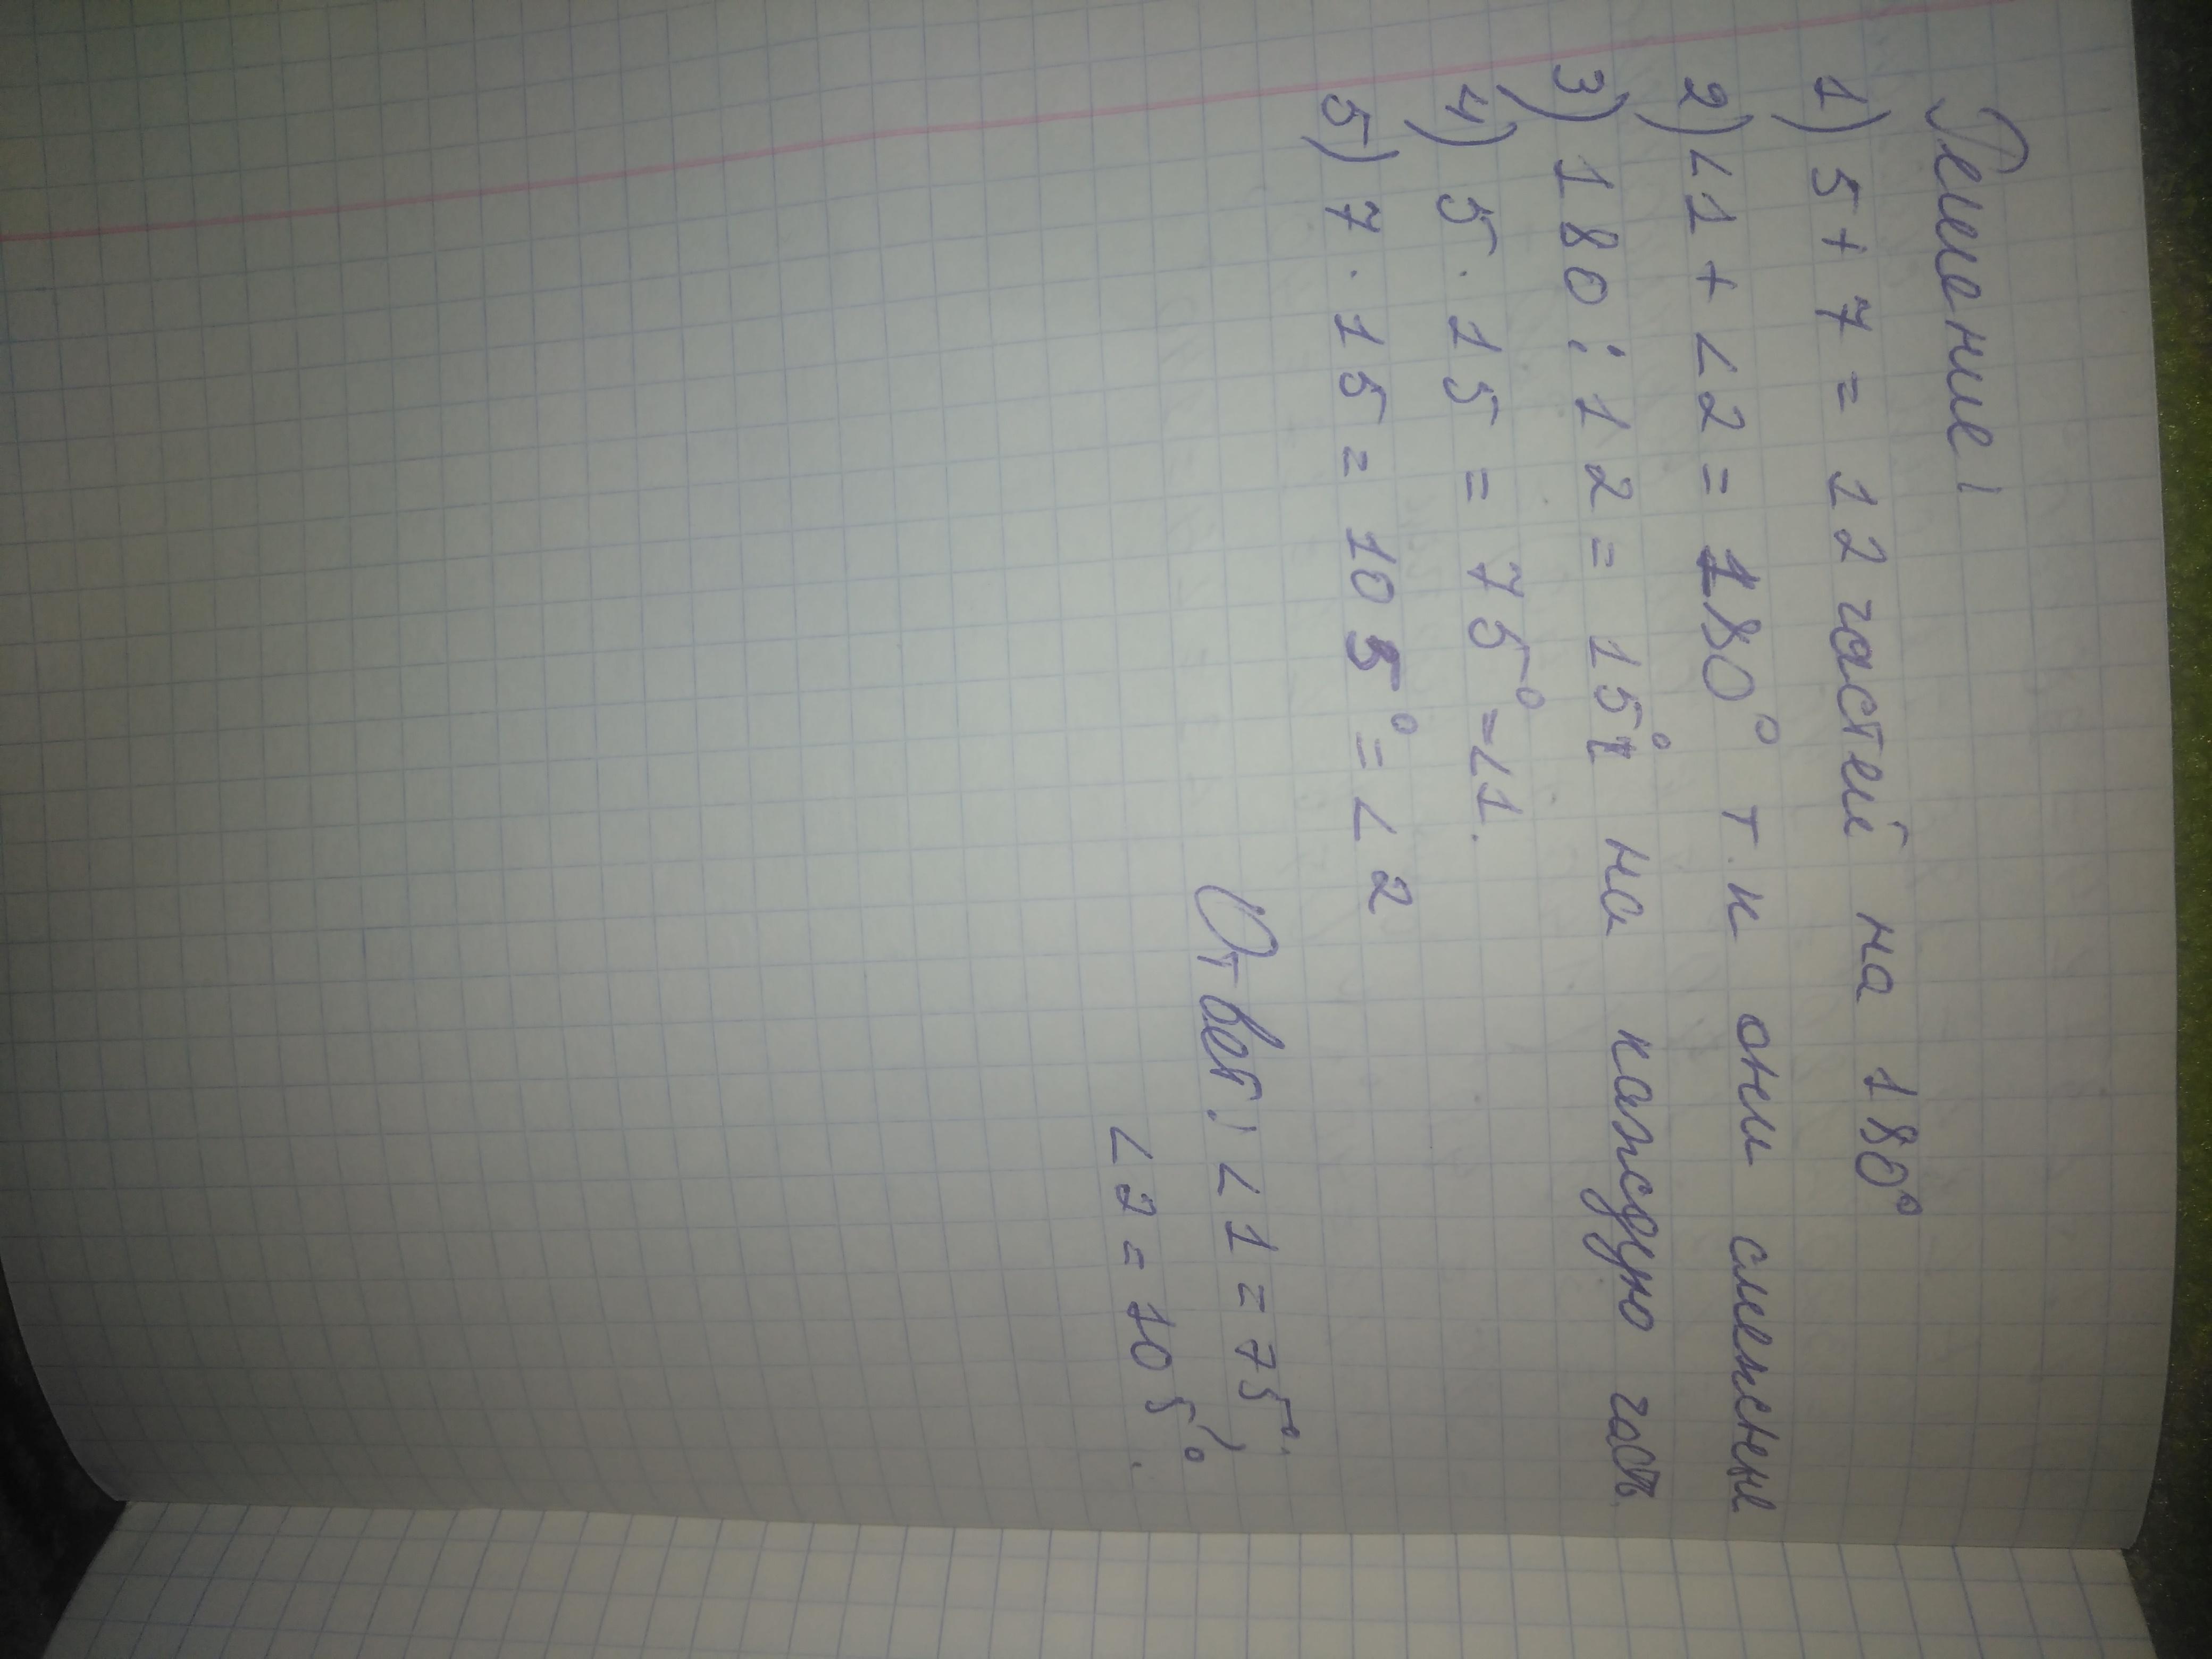 Решение:
1) 5 + 7 = 12 частей на 180°
2) ∠1 + ∠2 = 180° т.к они смежны
3) 180 : 12 = 15° на каждую часть.
4) 5 · 15 = 75° = ∠1.
5) 7 · 15 = 105° = ∠2
Ответ: ∠1 = 75°;
∠2 = 105°.